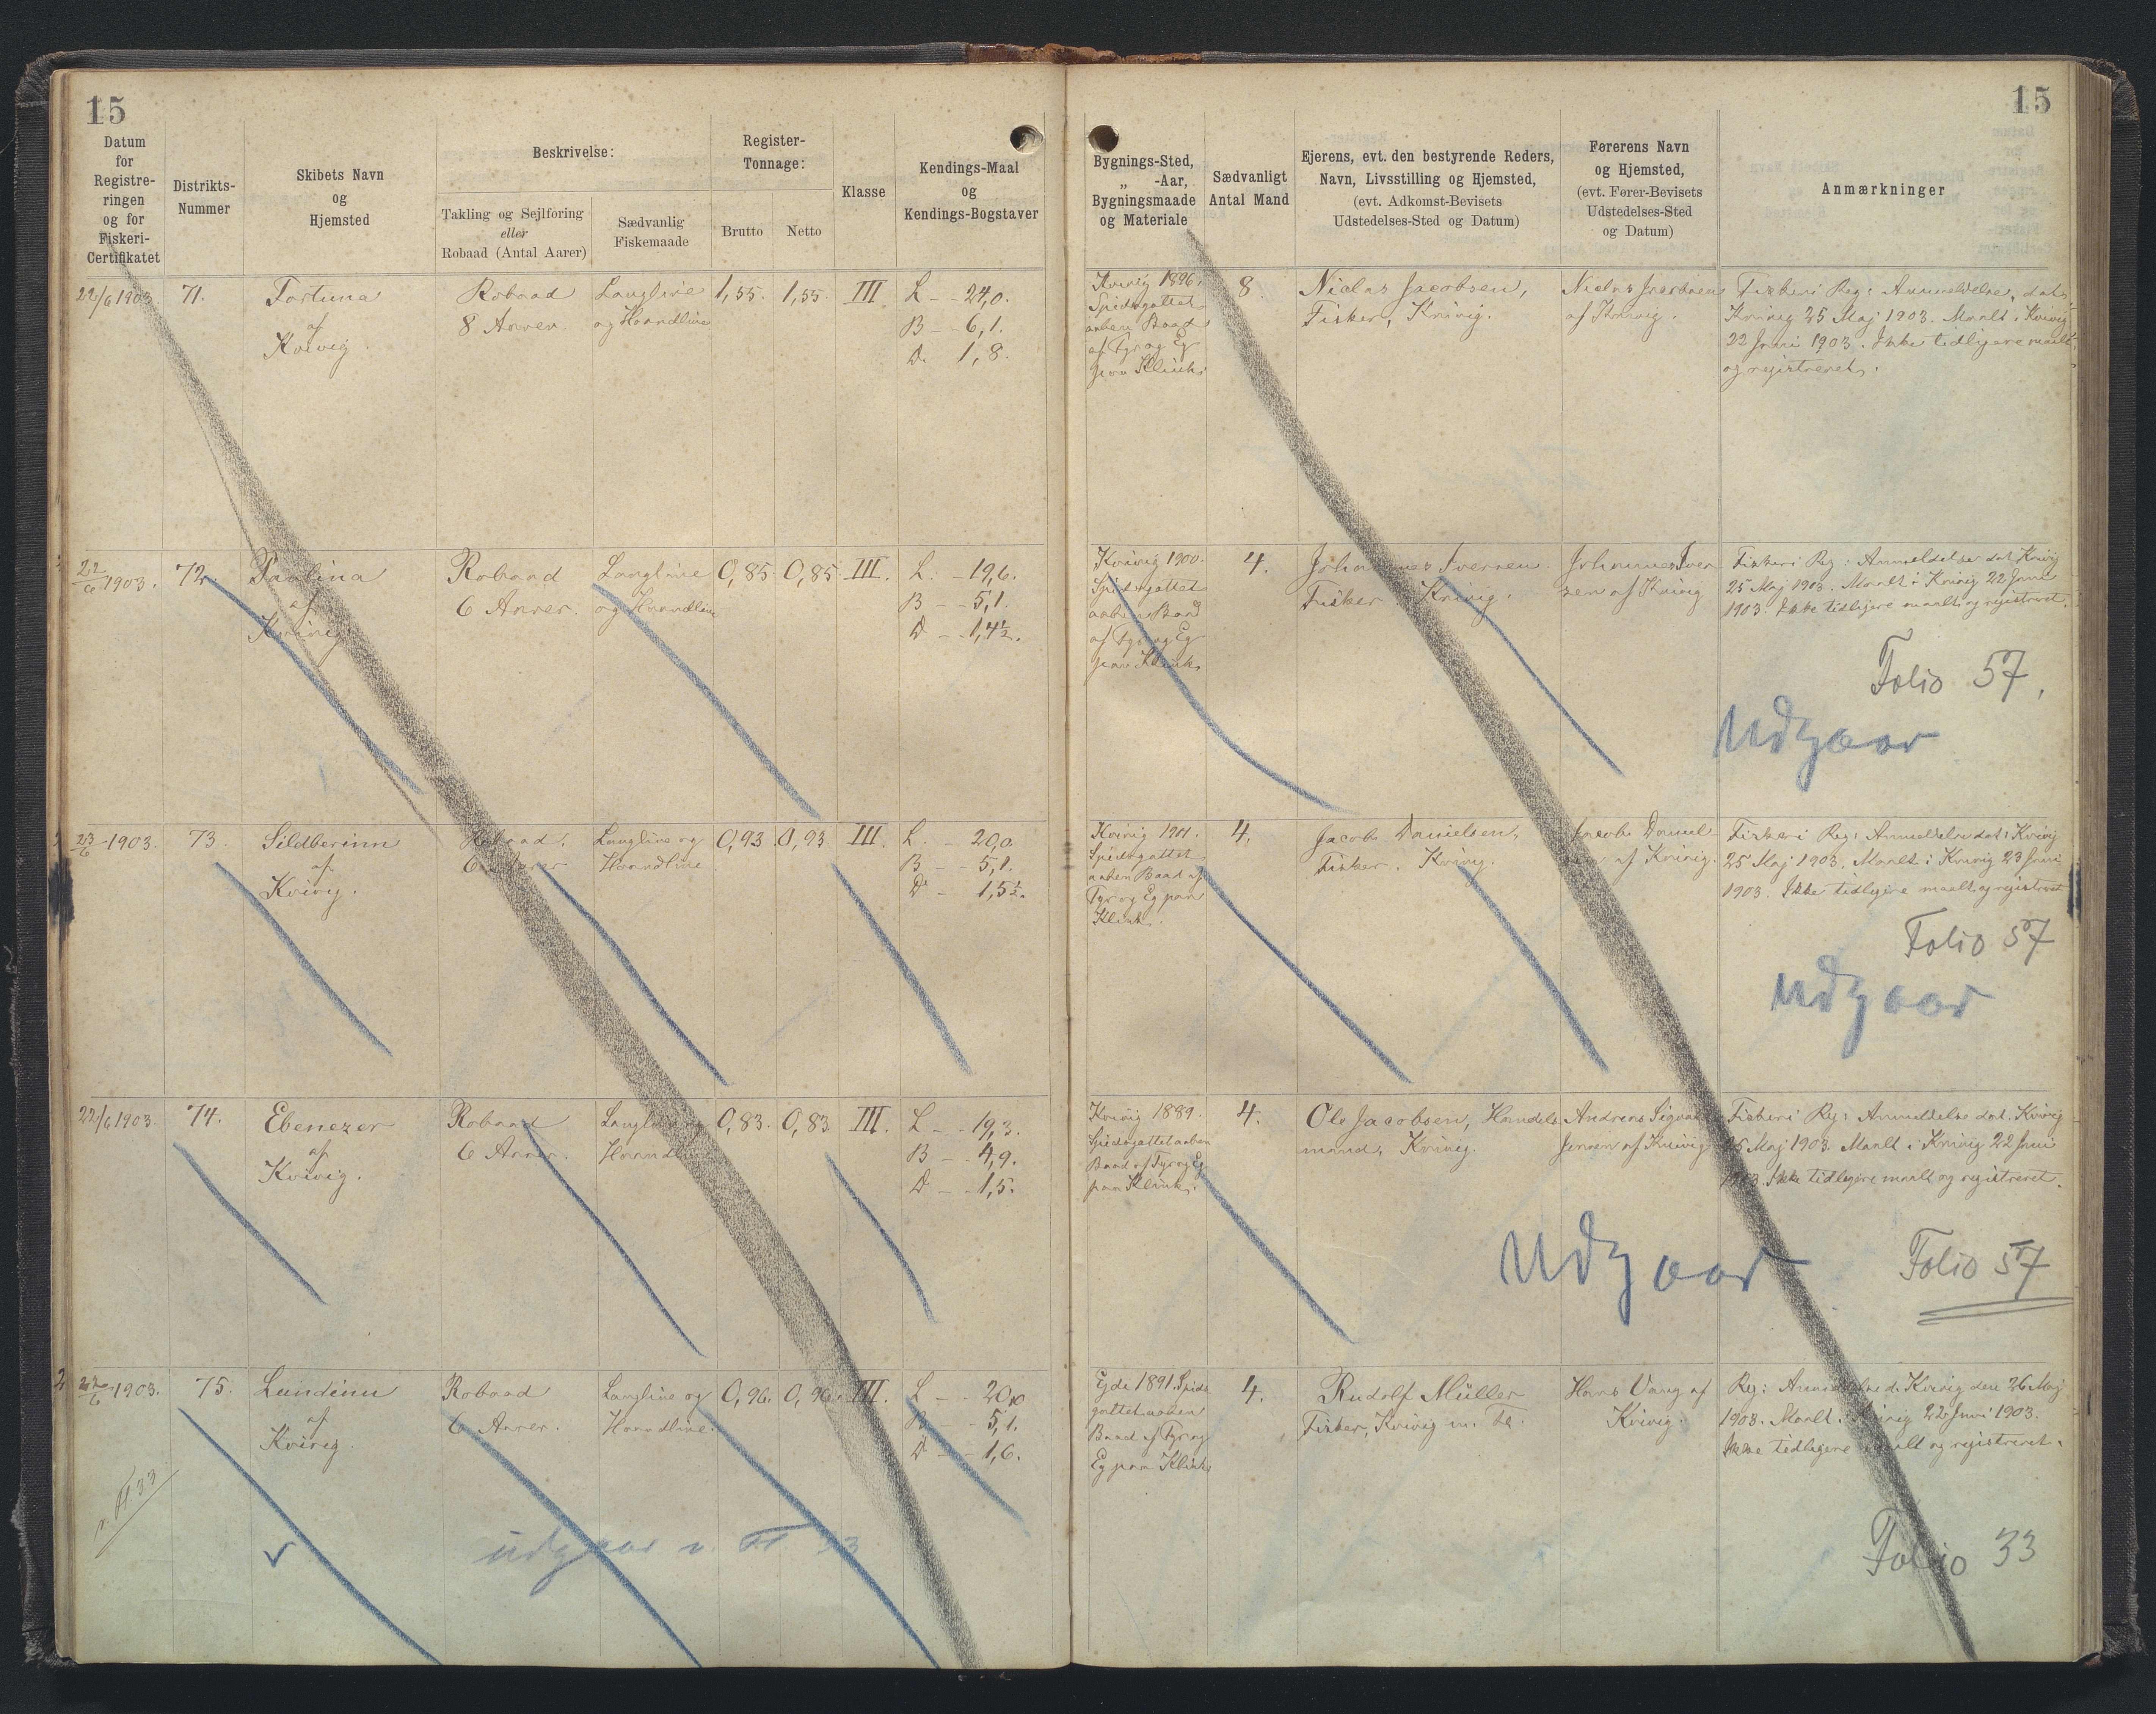 15
15
Datum
for
Registre-
ringen
og for
Fiskeri-
Certifikatet
Distrikts-
Nummer
Skibets Navn
og
Hjemsted
Beskrivelse:
Takling og Sejlføring
eller
Robaad (Antal Aarer)
Sædvanlig
Fiskemaade
Register-
Tonnage:
Brutto
Netto
Klasse
Kendings-Maal
og
Kendings-Bogstaver
Bygnings-Sted,
„ -Aar,
Bygningsmaade
og Materiale
Sædvanligt
Antal Mand
Ejerens, evt. den bestyrende Reders,
Navn, Livsstilling og Hjemsted,
(evt. Adkomst-Bevisets
Udstedelses-Sted og Datum)
Førerens Navn
og Hjemsted,
(evt. Fører-Bevisets
Udstedelses-Sted
og Datum)
Anmærkninger
22/6 1903.
71.
Fortuna
af
Kvivig.
Robaad
8 Aarer
Langline
og Haandline
1,55.
1,55.
III
L - 24,0.
B - 6,1.
D. 1,8.
Kvivig 1896.
Spidsgattet
aaben Baad
af Fyr og Eg
paa Klink.
8
Niclas Jacobsen,
Fisker, Kvivig.
Niclas Jacobsen
af Kvivig.
Fiskeri Reg: Anmeldelse, dat.
Kvivig 25 Maj 1903. Maalt i Kvivig
22 Juni 1903. Ikke tidligere maalt
og registreret.
22/6 1903.
72.
Paulina
af
Kvivig
Robaad
6 Aarer.
Langline
og Haandline
0,85
0,85
III.
L. - 19,6.
B - 5,1.
D - 1,4½.
Kvivig 1900.
Spidsgattet
aaben Baad
af Fyr og Eg
paa Klink.
4.
Johannes Iversen
Fisker. Kvivig.
Johannes Iver-
sen af Kvivig
Fiskeri Reg: Anmeldelse dat. Kvivig
25 Maj 1903. Maalt i Kvivig 22 Juni
1903. Ikke tidligere maalt og registreret.
Folio 57.
Udgaar
23/6 1903.
73.
Sildberinn
af
Kvivig.
Robaad.
6 Aarer
Langline og
Haandline
0,93
0,93
III.
L. - 20,0.
B - 5,1.
D - 1,5½.
Kvivig 1901.
Spidsgattet
aaben Baad af
Fyr og Eg paa
Klink.
4.
Jacob Danielsen,
Fisker. Kvivig.
Jacob Daniel
sen af Kvivig.
Fiskeri Reg: Anmeldelse dat: Kvivig
25 Maj 1903. Maalt i Kvivig 23 Juni
1903. Ikke tidligere maalt og registreret
Folio 57
udgaar
22/6 1903.
74.
Ebenezer
af
Kvivig.
Robaad
6 Aarer.
Langline og
Haandline
0,83.
0,83
III.
L - 19,3.
B - 4,9.
D - 1,5.
Kvivig 1889.
Spidsgattet aaben
Baad af Fyr og Eg
paa Klink.
4.
Ole Jacobsen, Handels
mand, Kvivig.
Andreas
Jensen af Kvivig
Fiskeri Reg: Anmeldelse dat. Kvivig
25 Maj 1903. Maalt i Kvivig 22 Juni
1903. Ikke tidligere maalt og registreret.
Udgaar
Folio 57
22/6 1903.
75.
Lundinn
af
Kvivig.
Robaad
6 Aarer.
Langline og
Haandline.
0,96.
0,96.
III.
L - 20,0
B - 5,1.
D - 1,6.
Egde 1891. Spids
gattet aaben
Baad af Fyr og
Eg paa Klink
4.
Rudolf Müller
Fisker, Kvivig m. Fl.
Hans Vang af
Kvivig.
Reg: Anmeldelse d. Kvivig den 26 Maj
1903. Maalt i Kvivig 22 Juni 1903.
Ikke tidligere maalt og registreret.
v. Fl 33
udgaar v. Fl 33
Folio 33